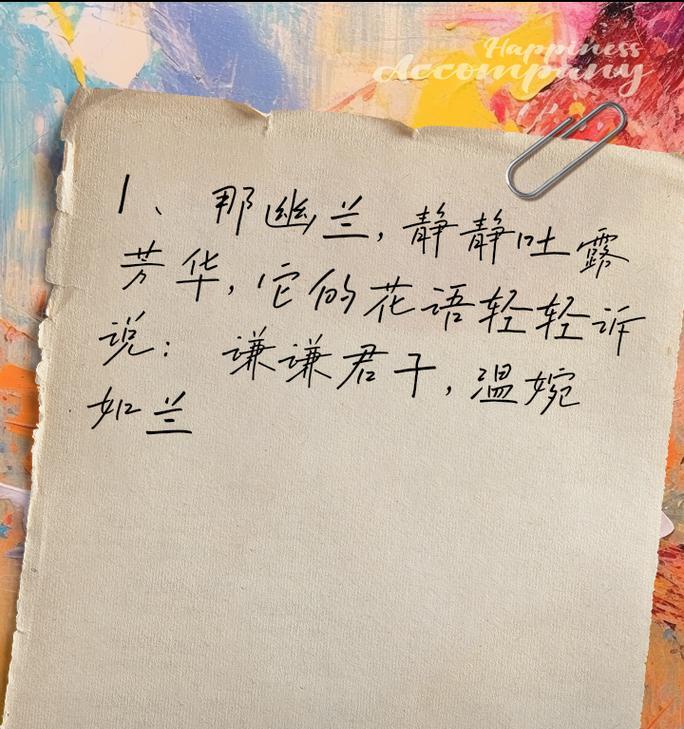 Happiness
Accompany
1、那幽兰,静静吐露
芳华,它的花语轻轻诉
说:谦谦君子,温婉
如兰